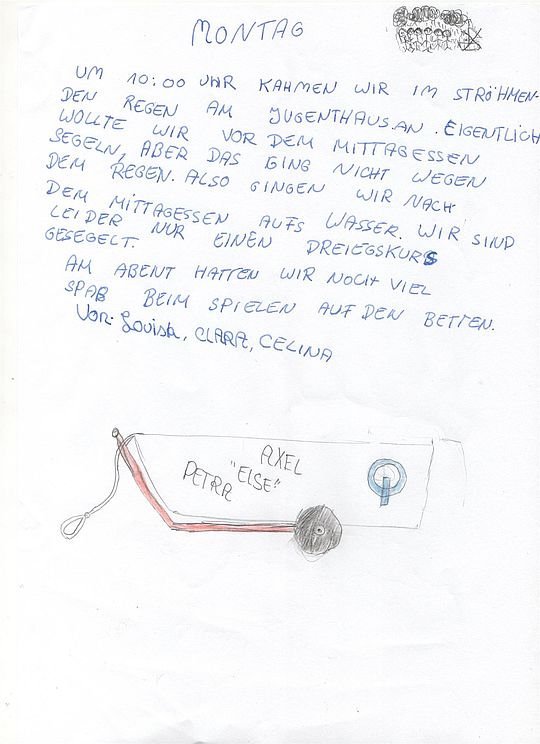 MONTAG
UM 10:00 UHR KAHMEN WIR IM STRÖHMEN-
DEN REGEN AM JUGENTHAUS.AN. EIGENTLICH
WOLLTE WIR VOR DEM MITTAGESSEN
SEGELN, ABER DAS GING NICHT WEGEN
DEM REGEN. ALSO GINGEN WIR NACH
DEM MITTAGESSEN AUFS WASSER. WIR SIND
LEIDER NUR EINEN DREIEGSKURS
GESEGELT.
AM ABENT HATTEN WIR NOCH VIEL
SPAß BEIM SPIELEN AUF DEN BETTEN.
Von: Louisa, CLARA, CELINA
AXEL
PETRA "ELSE"